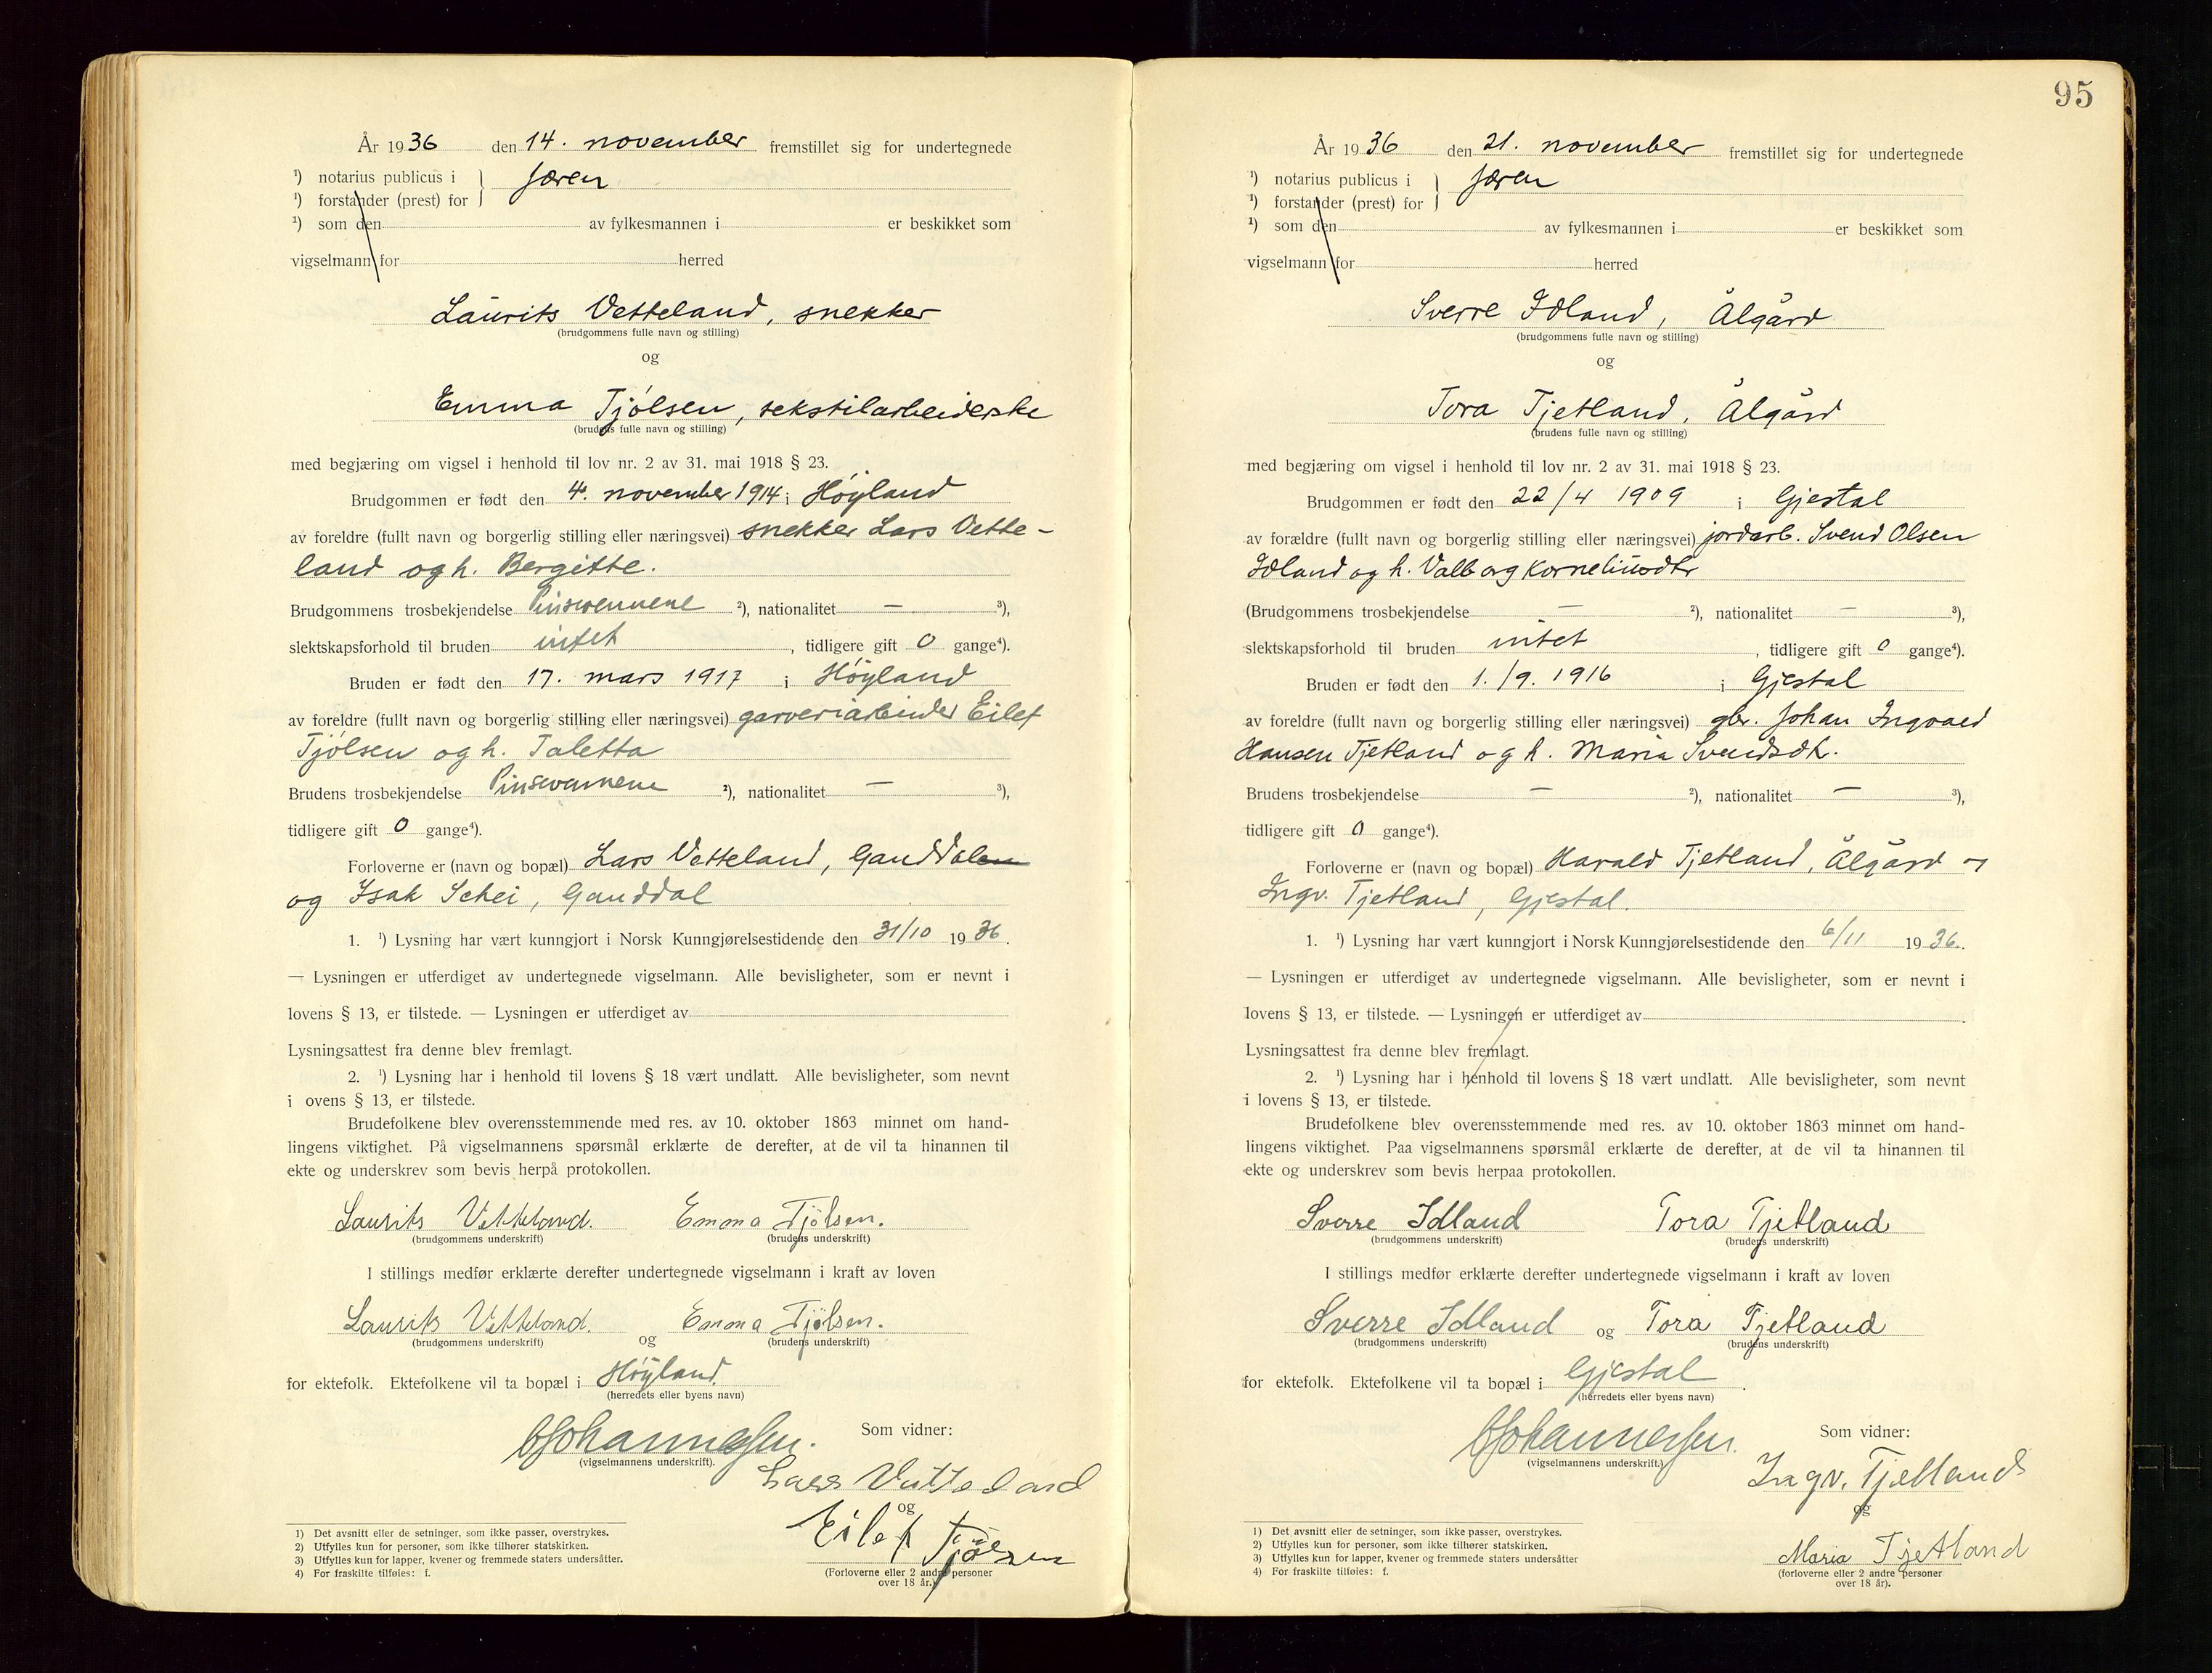 År 1936 den 14. november fremstillet sig for undertegnede
¹) notarius publicus i } Jæren
¹) forstander (prest) for
¹) som den av fylkesmannen i er beskikket som
vigselmann for herred
Laurits Vetteland, snekker
(brudgommens fulle navn og stilling)
og
Emma Tjølsen, tekstilarbeiderske
(brudens fulle navn og stilling)
med begjæring om vigsel i henhold til lov nr. 2 av 31. mai 1918 § 23.
Brudgommen er født den 4. november 1914 i Høyland
av foreldre (fullt navn og borgerlig stilling eller næringsvei) snekker Lars Vette-
land og h. Bergitte.
Brudgommens trosbekjendelse Pinsevennene ²), nationalitet — ³),
slektskapsforhold til bruden intet, tidligere gift 0 gange⁴).
Bruden er født den 17. mars 1917 i Høyland
av foreldre (fullt navn og borgerlig stilling eller næringsvei) garveriarbeider Eilef
Tjølsen og h. Taletta
Brudens trosbekjendelse Pinsevennene ²), nationalitet — ³),
tidligere gift 0 gange⁴).
Forloverne er (navn og bopæl) Lars Vetteland, Ganddalen
og Isak Schei, Ganddal
1. ¹) Lysning har vært kunngjort i Norsk Kunngjørelsestidende den 31/10 1936.
— Lysningen er utferdiget av undertegnede vigselmann. Alle bevisligheter, som er nevnt i
lovens § 13, er tilstede. — Lysningen er utferdiget av
Lysningsattest fra denne blev fremlagt.
2. ¹) Lysning har i henhold til lovens § 18 vært undlatt. Alle bevisligheter, som nevnt
i ovens § 13, er tilstede.
Brudefolkene blev overensstemmende med res. av 10. oktober 1863 minnet om hand-
lingens viktighet. På vigselmannens spørsmål erklærte de derefter, at de vil ta hinannen til
ekte og underskrev som bevis herpå protokollen.
Laurits Vetteland. Emma Tjølsen.
(brudgommens underskrift) (brudens underskrift)
I stillings medfør erklærte derefter undertegnede vigselmann i kraft av loven
Laurits Vetteland. og Emma Tjølsen.
(brudgommens underskrift) (brudens underskrift)
for ektefolk. Ektefolkene vil ta bopæl i Høyland.
(herredets eller byens navn)
Johannessen. Som vidner:
(vigselmannens underskrift).
Lars Vetteland
og
Eilef Tjølsen
(Forloverne eller 2 andre personer
over 18 år.)
1) Det avsnitt eller de setninger, som ikke passer, overstrykes.
2) Utfylles kun for personer, som ikke tilhører statskirken.
3) Utfylles kun for lapper, kvener og fremmede staters undersåtter.
4) For fraskilte tilføies: f.
95
År 1936 den 21. november fremstillet sig for undertegnede
¹) notarius publicus i } Jæren
¹) forstander (prest) for
¹) som den av fylkesmannen i er beskikket som
vigselmann for herred
Sverre Idland, Ålgård
(brudgommens fulle navn og stilling)
og
Tora Tjetland, Ålgård
(brudens fulle navn og stilling)
med begjæring om vigsel i henhold til lov nr. 2 av 31. mai 1918 § 23.
Brudgommen er født den 22/4 1909 i Gjestal
av forældre (fullt navn og borgerlig stilling eller næringsvei) jordarb. Svend Olsen
Idland og h. Valborg Korneliusdtr
(Brudgommens trosbekjendelse — ²), nationalitet — ³),
slektskapsforhold til bruden intet, tidligere gift 0 gange⁴).
Bruden er født den 1./9. 1916 i Gjestal
av foreldre (fullt navn og borgerlig stilling eller næringsvei) gbr. Johan Ingvald
Hansen Tjetland og h. Maria Svendsdt.
Brudens trosbekjendelse — ²), nationalitet — ³),
tidligere gift 0 gange⁴).
Forloverne er (navn og bopæl) Harald Tjetland, Ålgård og
Ingv. Tjetland, Gjestal.
1. ¹) Lysning har vært kunngjort i Norsk Kunngjørelsestidende den 6/11 1936.
— Lysningen er utferdiget av undertegnede vigselmann. Alle bevisligheter, som er nevnt i
lovens § 13, er tilstede. — Lysningen er utferdiget av
Lysningsattest fra denne blev fremlagt.
2. ¹) Lysning har i henhold til lovens § 18 vært undlatt. Alle bevisligheter, som nevnt
i lovens § 13, er tilstede.
Brudefolkene blev overensstemmende med res. av 10. oktober 1863 minnet om hand-
lingens viktighet. Paa vigselmannens spørsmål erklærte de derefter, at de vil ta hinannen til
ekte og underskrev som bevis herpaa protokollen.
Sverre Idland Tora Tjetland
(brudgommens underskrift) (brudens underskrift)
I stillings medfør erklærte derefter undertegnede vigselmann i kraft av loven
Sverre Idland og Tora Tjetland
(brudgommens underskrift) (brudens underskrift)
for ektefolk. Ektefolkene vil ta bopæl i Gjestal.
(herredets eller byens navn)
Johannessen. Som vidner:
(vigselmannens underskrift.)
Ingv. Tjetland
og
Maria Tjetland
(forloverne eller 2 andre personer
over 18 år).
1) Det avsnitt eller de setninger, som ikke passer, overstrykes.
2) Utfylles kun for personer, som ikke tilhører statskirken.
3) Utfylles kun for lapper, kvener og fremmede staters undersåtter
4) For fraskilte tilføies: f.